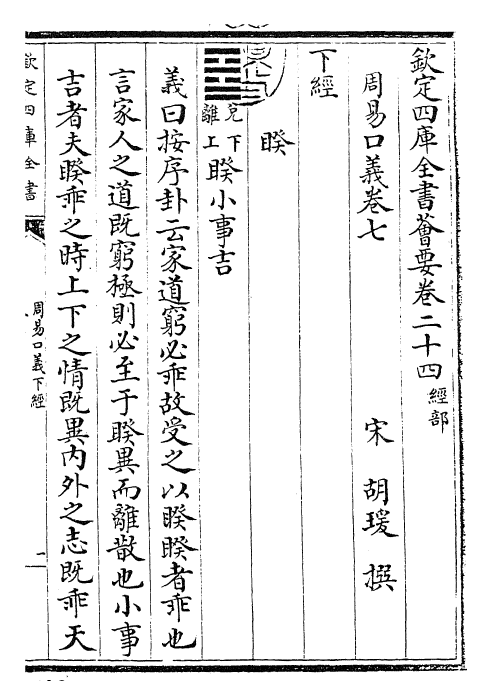 欽定四庫全書薈要卷二十四 經部
周易口義卷七
宋 胡瑗 撰
下經
睽
兌下
離上
睽小事吉
義曰按序卦云家道窮必乖故受之以睽睽者乖也
言家人之道既窮極則必至于睽異而離散也小事
吉者夫睽乖之時上下之情既異内外之志既乖天
欽定四庫全書
周易口義下經
一